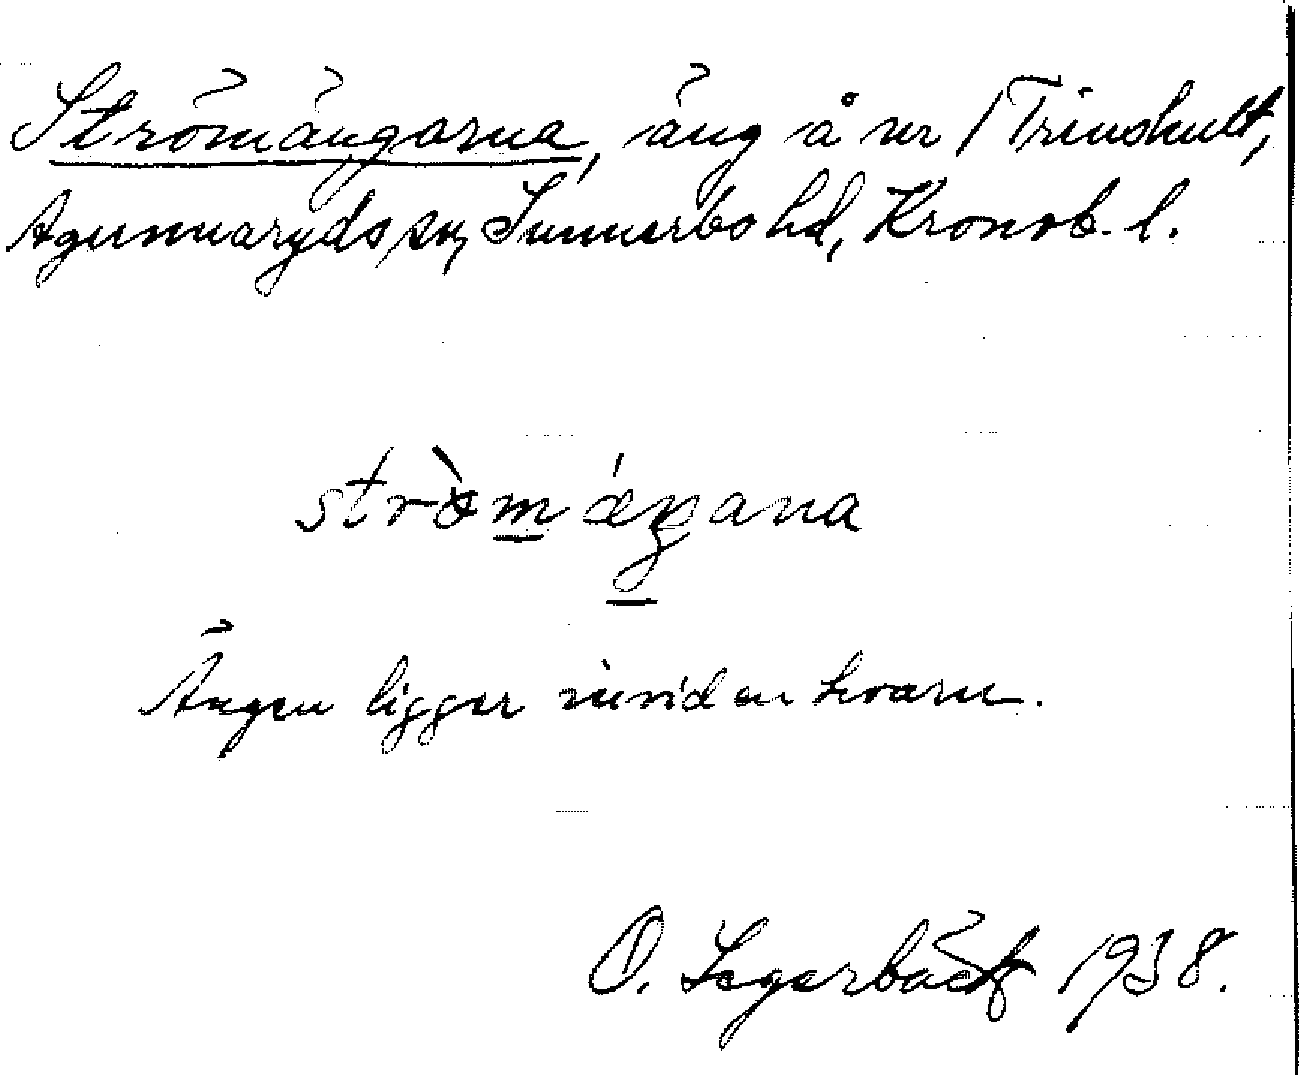 Strömängarna, äng å nr 1 Trinshult,
Agunnaryds sn, Sunnerbo hd, Kronob. l.
stròmáŋana
Ängen ligger invid en kvarn.
O. Segerbäck 1938.